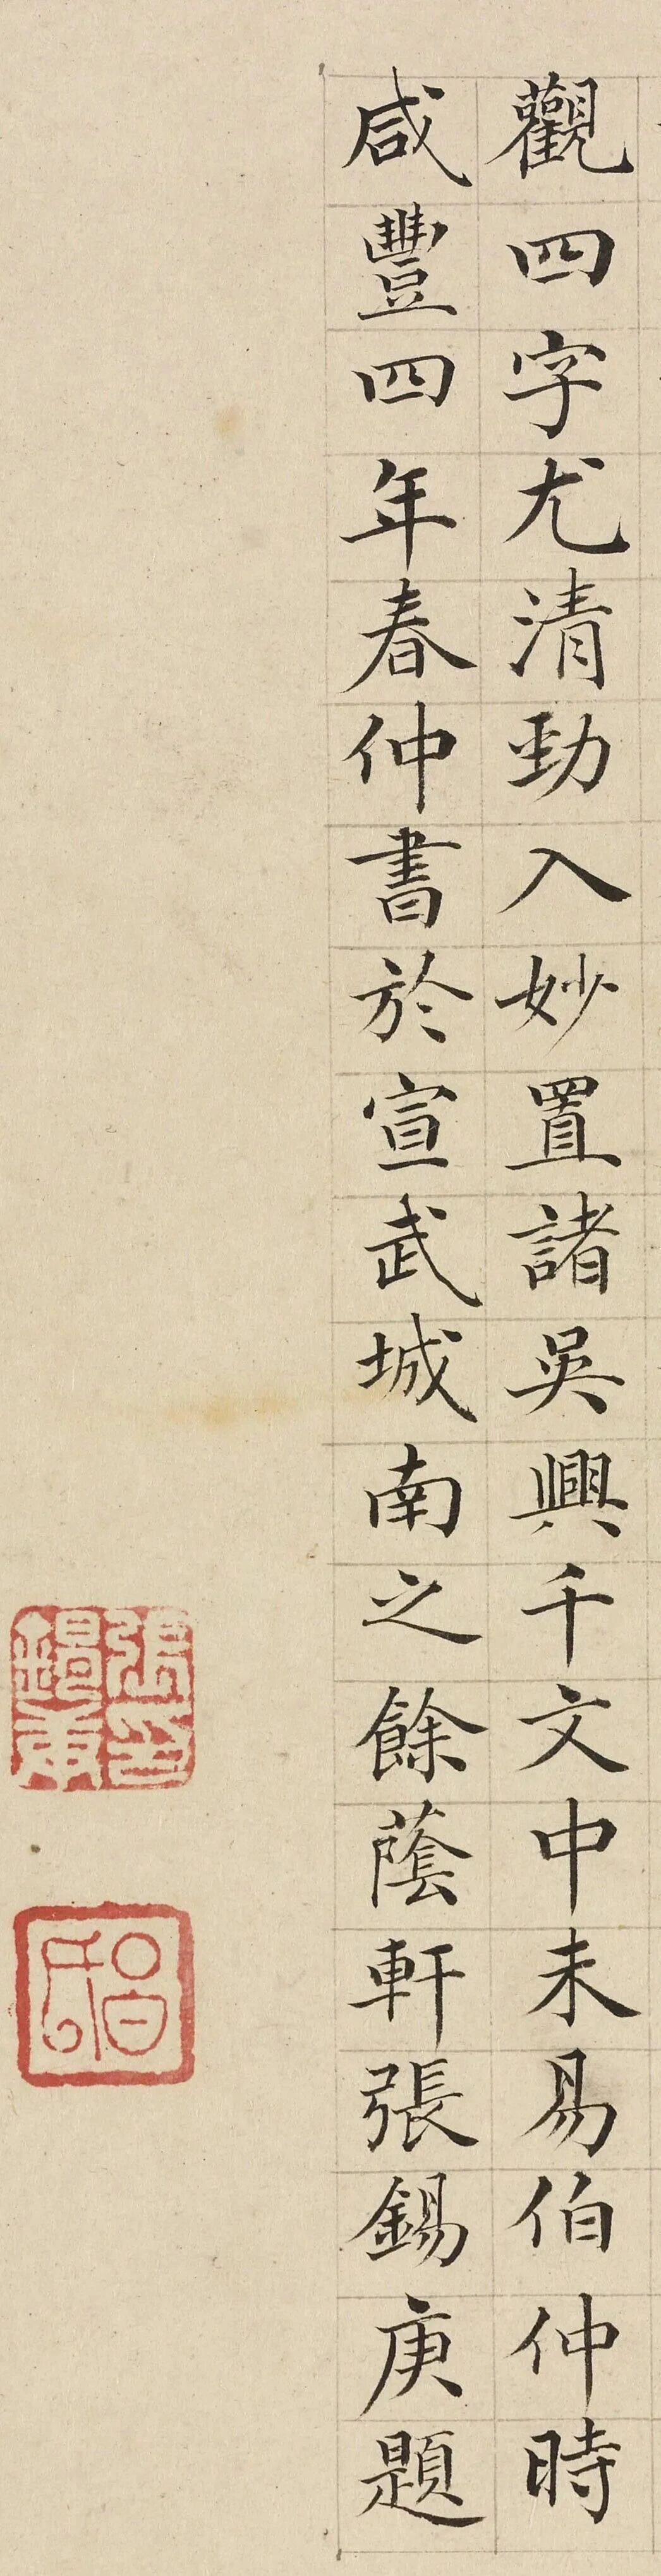 觀四字尤清勁入妙置諸吳興千文中未易伯仲時
咸豐四年春仲書於宣武城南之餘蔭軒張錫庚題
張印錫庚